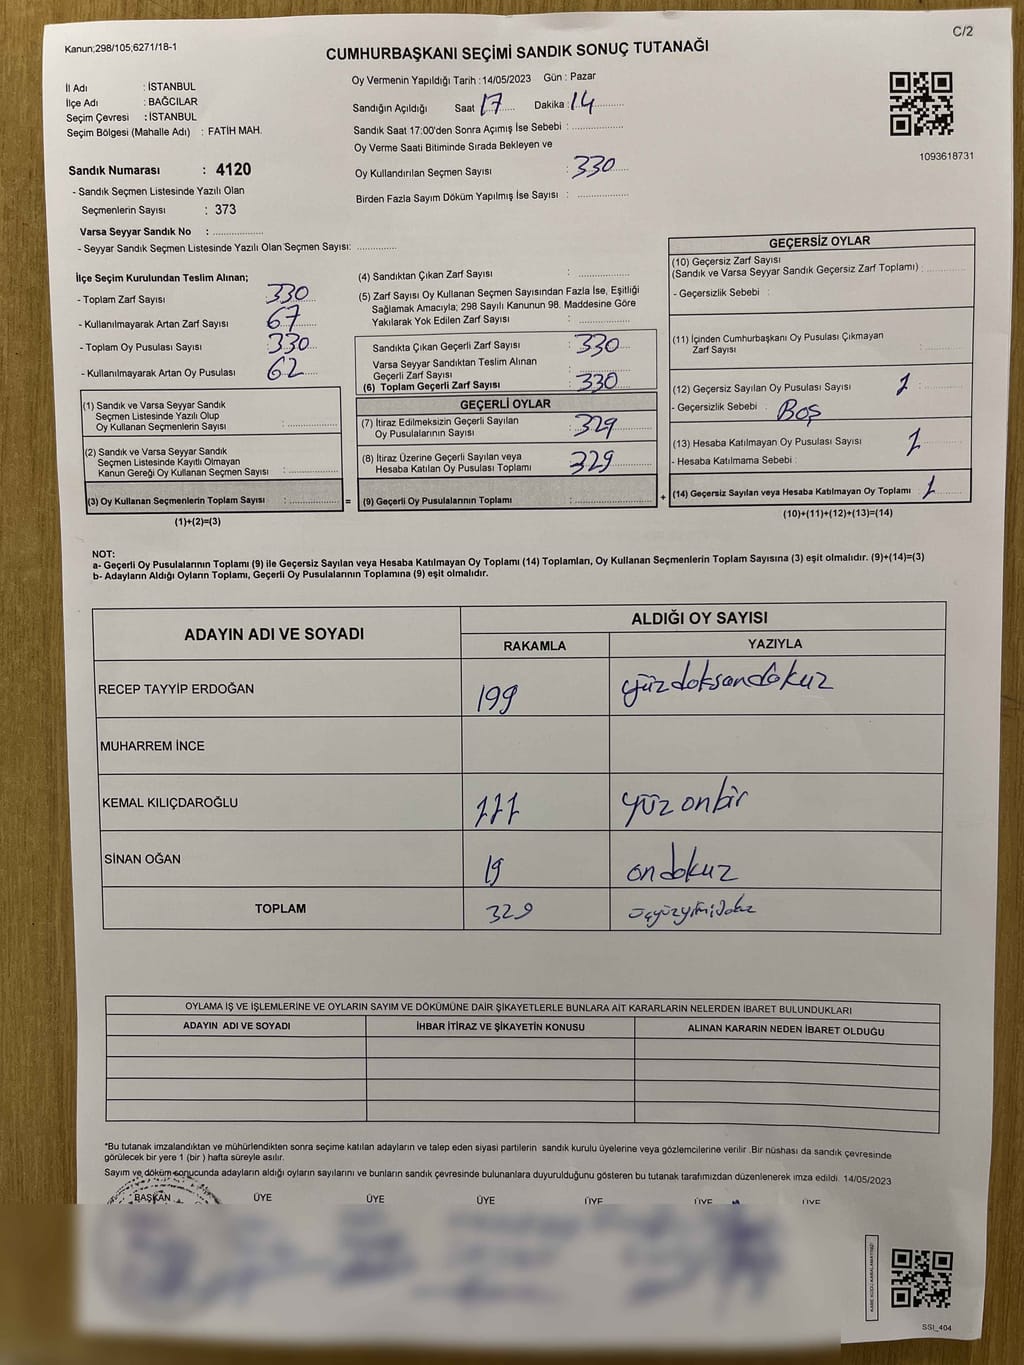 Kanun;298/105;6271/18-1
C/2
CUMHURBAŞKANI SEÇİMİ SANDIK SONUÇ TUTANAĞI
İl Adı : İSTANBUL
İlçe Adı : BAĞCILAR
Seçim Çevresi : İSTANBUL
Seçim Bölgesi (Mahalle Adı) : FATİH MAH.
Oy Vermenin Yapıldığı Tarih : 14/05/2023 Gün : Pazar
Sandığın Açıldığı Saat 17 Dakika : 14
Sandık Saat 17:00'den Sonra Açımış İse Sebebi :
Oy Verme Saati Bitiminde Sırada Bekleyen ve
Oy Kullandırılan Seçmen Sayısı : 330
Birden Fazla Sayım Döküm Yapılmış İse Sayısı :
1093618731
Sandık Numarası : 4120
- Sandık Seçmen Listesinde Yazılı Olan
Seçmenlerin Sayısı : 373
Varsa Seyyar Sandık No :
- Seyyar Sandık Seçmen Listesinde Yazılı Olan Seçmen Sayısı:
İlçe Seçim Kurulundan Teslim Alınan;
- Toplam Zarf Sayısı 330
- Kullanılmayarak Artan Zarf Sayısı 67
- Toplam Oy Pusulası Sayısı 330
- Kullanılmayarak Artan Oy Pusulası 62
(1) Sandık ve Varsa Seyyar Sandık
Seçmen Listesinde Yazılı Olup
Oy Kullanan Seçmenlerin Sayısı :
(2) Sandık ve Varsa Seyyar Sandık
Seçmen Listesinde Kayıtlı Olmayan
Kanun Gereği Oy Kullanan Seçmen Sayısı :
(3) Oy Kullanan Seçmenlerin Toplam Sayısı : =
(1)+(2)=(3)
(4) Sandıktan Çıkan Zarf Sayısı :
(5) Zarf Sayısı Oy Kullanan Seçmen Sayısından Fazla İse, Eşitliği
Sağlamak Amacıyla; 298 Sayılı Kanunun 98. Maddesine Göre
Yakılarak Yok Edilen Zarf Sayısı :
Sandıkta Çıkan Geçerli Zarf Sayısı : 330
Varsa Seyyar Sandıktan Teslim Alınan
Geçerli Zarf Sayısı :
(6) Toplam Geçerli Zarf Sayısı : 330
GEÇERLİ OYLAR
(7) İtiraz Edilmeksizin Geçerli Sayılan
Oy Pusulalarının Sayısı : 329
(8) İtiraz Üzerine Geçerli Sayılan veya
Hesaba Katılan Oy Pusulası Toplamı 329
(9) Geçerli Oy Pusulalarının Toplamı : +
GEÇERSİZ OYLAR
(10) Geçersiz Zarf Sayısı
(Sandık ve Varsa Seyyar Sandık Geçersiz Zarf Toplamı) :
- Geçersizlik Sebebi :
(11) İçinden Cumhurbaşkanı Oy Pusulası Çıkmayan
Zarf Sayısı :
(12) Geçersiz Sayılan Oy Pusulası Sayısı 1
- Geçersizlik Sebebi : Boş
(13) Hesaba Katılmayan Oy Pusulası Sayısı 1
- Hesaba Katılmama Sebebi :
(14) Geçersiz Sayılan veya Hesaba Katılmayan Oy Toplamı 1
(10)+(11)+(12)+(13)=(14)
NOT:
a- Geçerli Oy Pusulalarının Toplamı (9) ile Geçersiz Sayılan veya Hesaba Katılmayan Oy Toplamı (14) Toplamları, Oy Kullanan Seçmenlerin Toplam Sayısına (3) eşit olmalıdır. (9)+(14)=(3)
b- Adayların Aldığı Oyların Toplamı, Geçerli Oy Pusulalarının Toplamına (9) eşit olmalıdır.
ADAYIN ADI VE SOYADI ALDIĞI OY SAYISI
RAKAMLA YAZIYLA
RECEP TAYYİP ERDOĞAN 199 yüzdoksandokuz
MUHARREM İNCE
KEMAL KILIÇDAROĞLU 111 yüz onbir
SİNAN OĞAN 19 ondokuz
TOPLAM 329 üçyüzyirmidokuz
OYLAMA İŞ VE İŞLEMLERİNE VE OYLARIN SAYIM VE DÖKÜMÜNE DAİR ŞİKAYETLERLE BUNLARA AİT KARARLARIN NELERDEN İBARET BULUNDUKLARI
ADAYIN ADI VE SOYADI İHBAR İTİRAZ VE ŞİKAYETİN KONUSU ALINAN KARARIN NEDEN İBARET OLDUĞU
*Bu tutanak imzalandıktan ve mühürlendikten sonra seçime katılan adayların ve talep eden siyasi partilerin sandık kurulu üyelerine veya gözlemcilerine verilir .Bir nüshası da sandık çevresinde
görülecek bir yere 1 (bir ) hafta süreyle asılır.
Sayım ve döküm sonucunda adayların aldığı oyların sayılarını ve bunların sandık çevresinde bulunanlara duyurulduğunu gösteren bu tutanak tarafımızdan düzenlenerek imza edildi. 14/05/2023
BAŞKAN ÜYE ÜYE ÜYE ÜYE ÜYE ÜYE
SSI_404